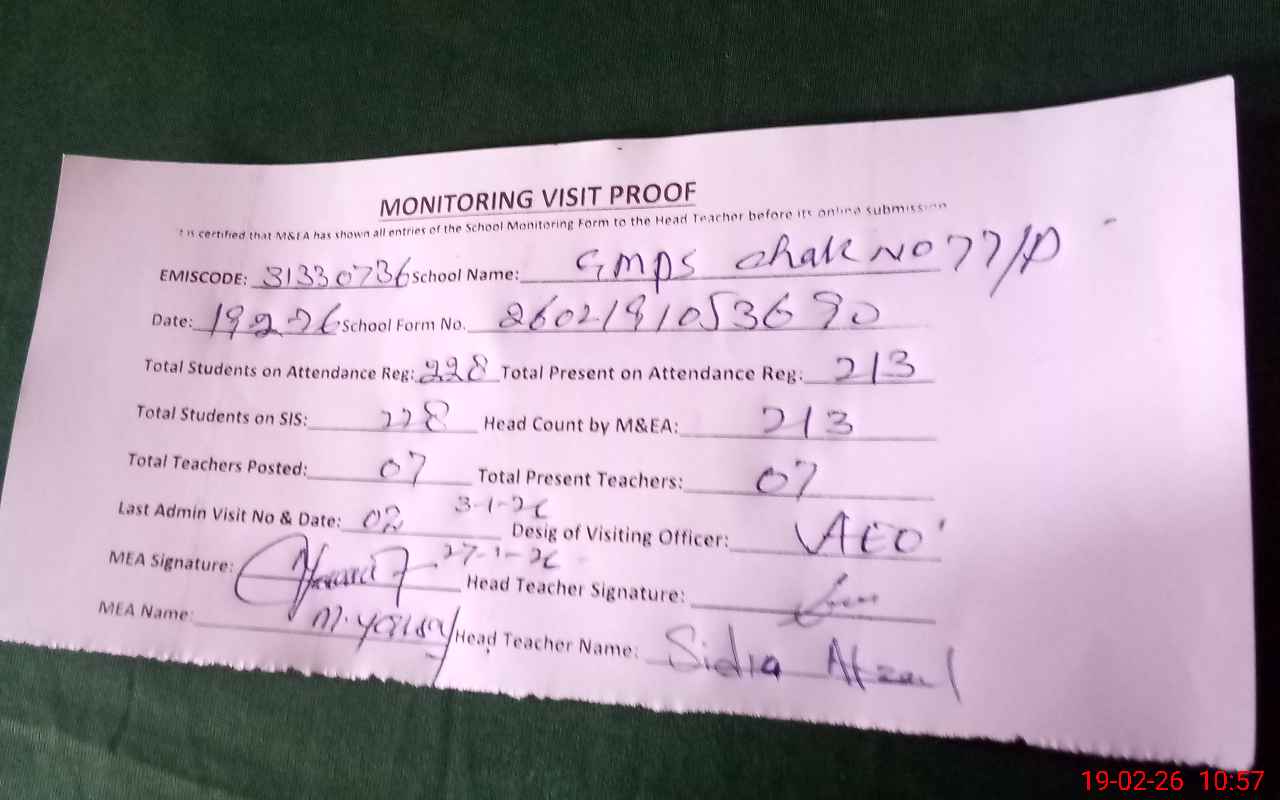 MONITORING VISIT PROOF
t is certified that M&EA has shown all entries of the School Monitoring Form to the Head Teacher before its online submission
EMISCODE: 31330736 School Name: GMPS Chak NO 77/P
Date: 19 2 26 School Form No. 2602191053690
Total Students on Attendance Reg: 228 Total Present on Attendance Reg: 213
Total Students on SIS: 228 Head Count by M&EA: 213
Total Teachers Posted: 07 Total Present Teachers: 07
Last Admin Visit No & Date: 02 3-1-26 Desig of Visiting Officer: AEO
MEA Signature: 27-1-26 Head Teacher Signature:
MEA Name: Head Teacher Name: Sidra Afzaal
19-02-26 10:57